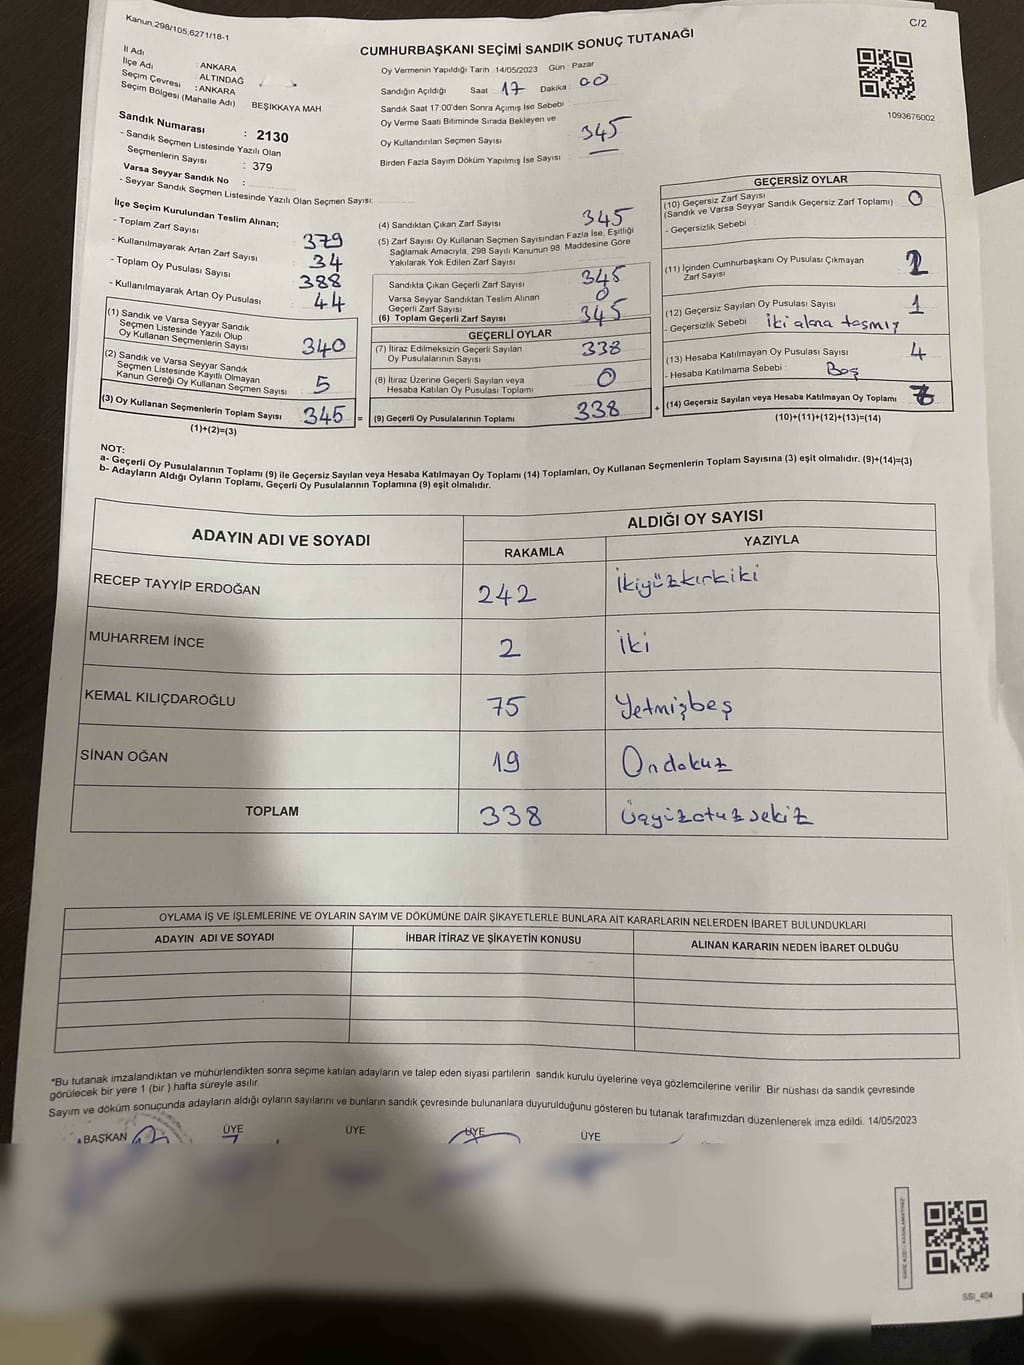 Kanun,298/105,6271/18-1
C/2
CUMHURBAŞKANI SEÇİMİ SANDIK SONUÇ TUTANAĞI
İl Adı : ANKARA
İlçe Adı : ALTINDAĞ
Seçim Çevresi : ANKARA
Seçim Bölgesi (Mahalle Adı) BEŞİKKAYA MAH.
Oy Vermenin Yapıldığı Tarih 14/05/2023 Gün : Pazar
Sandığın Açıldığı Saat : 17 Dakika : 00
Sandık Saat 17:00'den Sonra Açımış İse Sebebi
Oy Verme Saati Bitiminde Sırada Bekleyen ve
Oy Kullandırılan Seçmen Sayısı 345
Birden Fazla Sayım Döküm Yapılmış İse Sayısı —
1093676002
Sandık Numarası : 2130
- Sandık Seçmen Listesinde Yazılı Olan
Seçmenlerin Sayısı : 379
Varsa Seyyar Sandık No :
- Seyyar Sandık Seçmen Listesinde Yazılı Olan Seçmen Sayısı:
İlçe Seçim Kurulundan Teslim Alınan;
- Toplam Zarf Sayısı 379
- Kullanılmayarak Artan Zarf Sayısı 34
- Toplam Oy Pusulası Sayısı 388
- Kullanılmayarak Artan Oy Pusulası 44
(1) Sandık ve Varsa Seyyar Sandık
Seçmen Listesinde Yazılı Olup
Oy Kullanan Seçmenlerin Sayısı 340
(2) Sandık ve Varsa Seyyar Sandık
Seçmen Listesinde Kayıtlı Olmayan
Kanun Gereği Oy Kullanan Seçmen Sayısı 5
(3) Oy Kullanan Seçmenlerin Toplam Sayısı 345 =
(1)+(2)=(3)
(4) Sandıktan Çıkan Zarf Sayısı 345
(5) Zarf Sayısı Oy Kullanan Seçmen Sayısından Fazla İse, Eşitliği
Sağlamak Amacıyla, 298 Sayılı Kanunun 98. Maddesine Göre
Yakılarak Yok Edilen Zarf Sayısı
Sandıkta Çıkan Geçerli Zarf Sayısı 345
Varsa Seyyar Sandıktan Teslim Alınan
Geçerli Zarf Sayısı 0
(6) Toplam Geçerli Zarf Sayısı 345
GEÇERLİ OYLAR
(7) İtiraz Edilmeksizin Geçerli Sayılan
Oy Pusulalarının Sayısı 338
(8) İtiraz Üzerine Geçerli Sayılan veya
Hesaba Katılan Oy Pusulası Toplamı 0
(9) Geçerli Oy Pusulalarının Toplamı 338 +
GEÇERSİZ OYLAR
(10) Geçersiz Zarf Sayısı
(Sandık ve Varsa Seyyar Sandık Geçersiz Zarf Toplamı) 0
- Geçersizlik Sebebi
(11) İçinden Cumhurbaşkanı Oy Pusulası Çıkmayan
Zarf Sayısı 2
(12) Geçersiz Sayılan Oy Pusulası Sayısı 1
- Geçersizlik Sebebi iki alana taşmış
(13) Hesaba Katılmayan Oy Pusulası Sayısı 4
- Hesaba Katılmama Sebebi : Boş
(14) Geçersiz Sayılan veya Hesaba Katılmayan Oy Toplamı 7
(10)+(11)+(12)+(13)=(14)
NOT:
a- Geçerli Oy Pusulalarının Toplamı (9) ile Geçersiz Sayılan veya Hesaba Katılmayan Oy Toplamı (14) Toplamları, Oy Kullanan Seçmenlerin Toplam Sayısına (3) eşit olmalıdır. (9)+(14)=(3)
b- Adayların Aldığı Oyların Toplamı, Geçerli Oy Pusulalarının Toplamına (9) eşit olmalıdır.
ADAYIN ADI VE SOYADI
ALDIĞI OY SAYISI
RAKAMLA YAZIYLA
RECEP TAYYİP ERDOĞAN 242 İkiyüzkırkiki
MUHARREM İNCE 2 İki
KEMAL KILIÇDAROĞLU 75 Yetmişbeş
SİNAN OĞAN 19 Ondokuz
TOPLAM 338 Üçyüzotuzsekiz
OYLAMA İŞ VE İŞLEMLERİNE VE OYLARIN SAYIM VE DÖKÜMÜNE DAİR ŞİKAYETLERLE BUNLARA AİT KARARLARIN NELERDEN İBARET BULUNDUKLARI
ADAYIN ADI VE SOYADI İHBAR İTİRAZ VE ŞİKAYETİN KONUSU ALINAN KARARIN NEDEN İBARET OLDUĞU
*Bu tutanak imzalandıktan ve mühürlendikten sonra seçime katılan adayların ve talep eden siyasi partilerin sandık kurulu üyelerine veya gözlemcilerine verilir. Bir nüshası da sandık çevresinde
görülecek bir yere 1 (bir ) hafta süreyle asılır.
Sayım ve döküm sonuçunda adayların aldığı oyların sayılarını ve bunların sandık çevresinde bulunanlara duyurulduğunu gösteren bu tutanak tarafımızdan düzenlenerek imza edildi. 14/05/2023
BAŞKAN ÜYE ÜYE ÜYE ÜYE
SSI_404